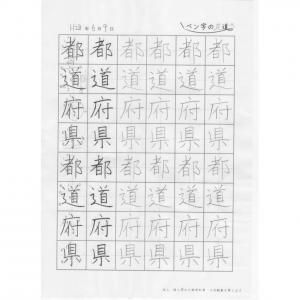 H28年6月9日
ペン字の道
都都都都都都
道道道道道道
府府府府府府
県県県県県県
都都都都都都
道道道道道道
府府府府府府
県県県県県県